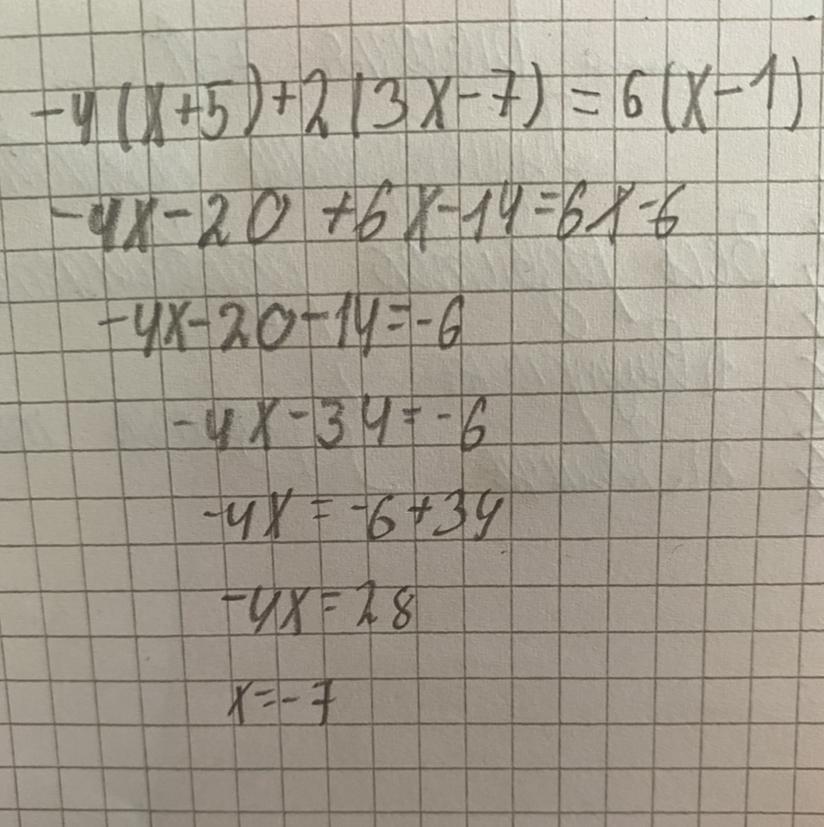 -4(x+5)+2(3x-7)=6(x-1)
-4x-20+6x-14=6x-6
-4x-20-14=-6
-4x-34=-6
-4x=-6+34
-4x=28
x=-7